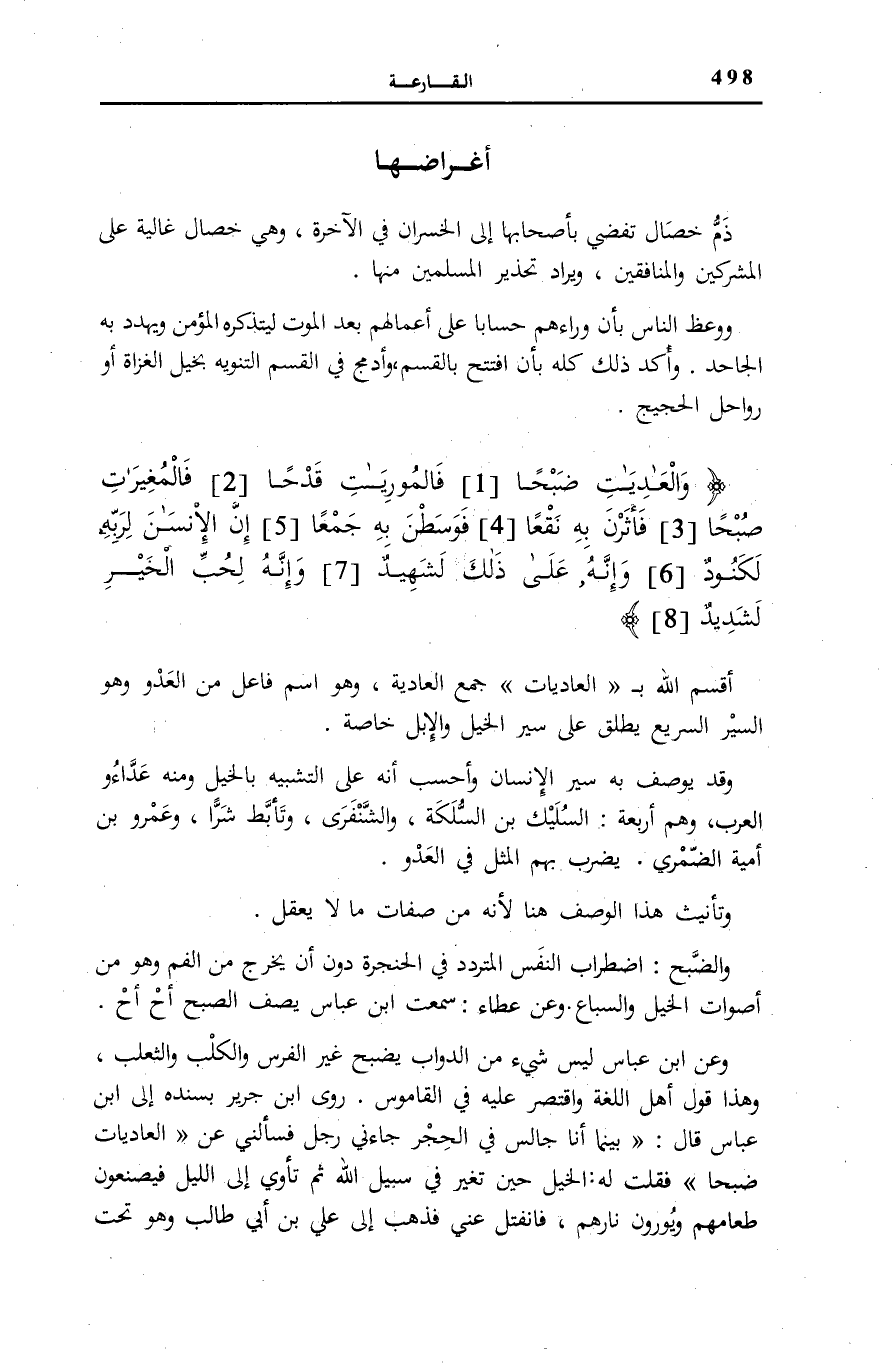 498
القـــارعـــة
أغـــراضـــهـا
ذَمُّ خصَال تفضي بأصحابها إلى الخسران في الآخرة ، وهي خصال غالية على
المشركين والمنافقين ، ويراد تحذير المسلمين منها .
ووعظ الناس بأن وراءهم حسابا على أعمالهم بعد الموت ليتذكره المؤمن ويهدد به
الجاحد . وأُكد ذلك كله بأن افتتح بالقسم،وأدمج في القسم التنويه بخيل الغزاة أو
رواحل الحجيج .
﴿ وَالْعَـٰدِيَـٰتِ ضَبْحًـا [1] فَالمُورِيَـٰتِ قَدْحًـا [2] فَالْمُغِيرَٰتِ
صُبْحًا [3] فَأَثَرْنَ بِهِ نَقْعًا [4] فَوَسَطْنَ بِهِ جَمْعًا [5] إِنَّ الإِنْسَـٰنَ لِرَبِّهِ
لَكَنُـودٌ [6] وَإِنَّـهُۥ عَلَـىٰ ذَٰلِكَ لَشَهِيـدٌ [7] وَإِنَّـهُ لِحُبِّ الْخَيْـــرِ
لَشَدِيدٌ [8] ﴾
أقسم الله بـ « العاديات » جمع العادية ، وهو اسم فاعل من العَدْو وهو
السيْر السريع يطلق على سير الخيل والإبل خاصة .
وقد يوصف به سير الإنسان وأحسب أنه على التشبيه بالخيل ومنه عَدَّاءُو
العرب، وهم أربعة : السُلَيْك بن السُّلَكَة ، والشَّنْفَرَى ، وتَأبَّط شَرًّا ، وعَمْرو بن
أمية الضّمْري . يضرب بهم المثل في العَدْو .
وتأنيث هذا الوصف هنا لأنه من صفات ما لا يعقل .
والضَّبح : اضطراب النفَس المتردد في الحنجرة دون أن يخرج من الفم وهو من
أصوات الخيل والسباع.وعن عطاء : سمعت ابن عباس يصف الصبح أحْ أحْ .
وعن ابن عباس ليس شيء من الدواب يضبح غير الفرس والكلْب والثعلب ،
وهذا قول أهل اللغة واقتصر عليه في القاموس . روى ابن جرير بسنده إلى ابن
عباس قال : « بينما أنا جالس في الحِجْر جاءني رجل فسألني عن « العاديات
ضبحا » فقلت له:الخيل حين تغير في سبيل الله ثم تأوي إلى الليل فيصنعون
طعامهم ويُورون نارهم ، فانفتل عني فذهب إلى علي بن أبي طالب وهو تحت